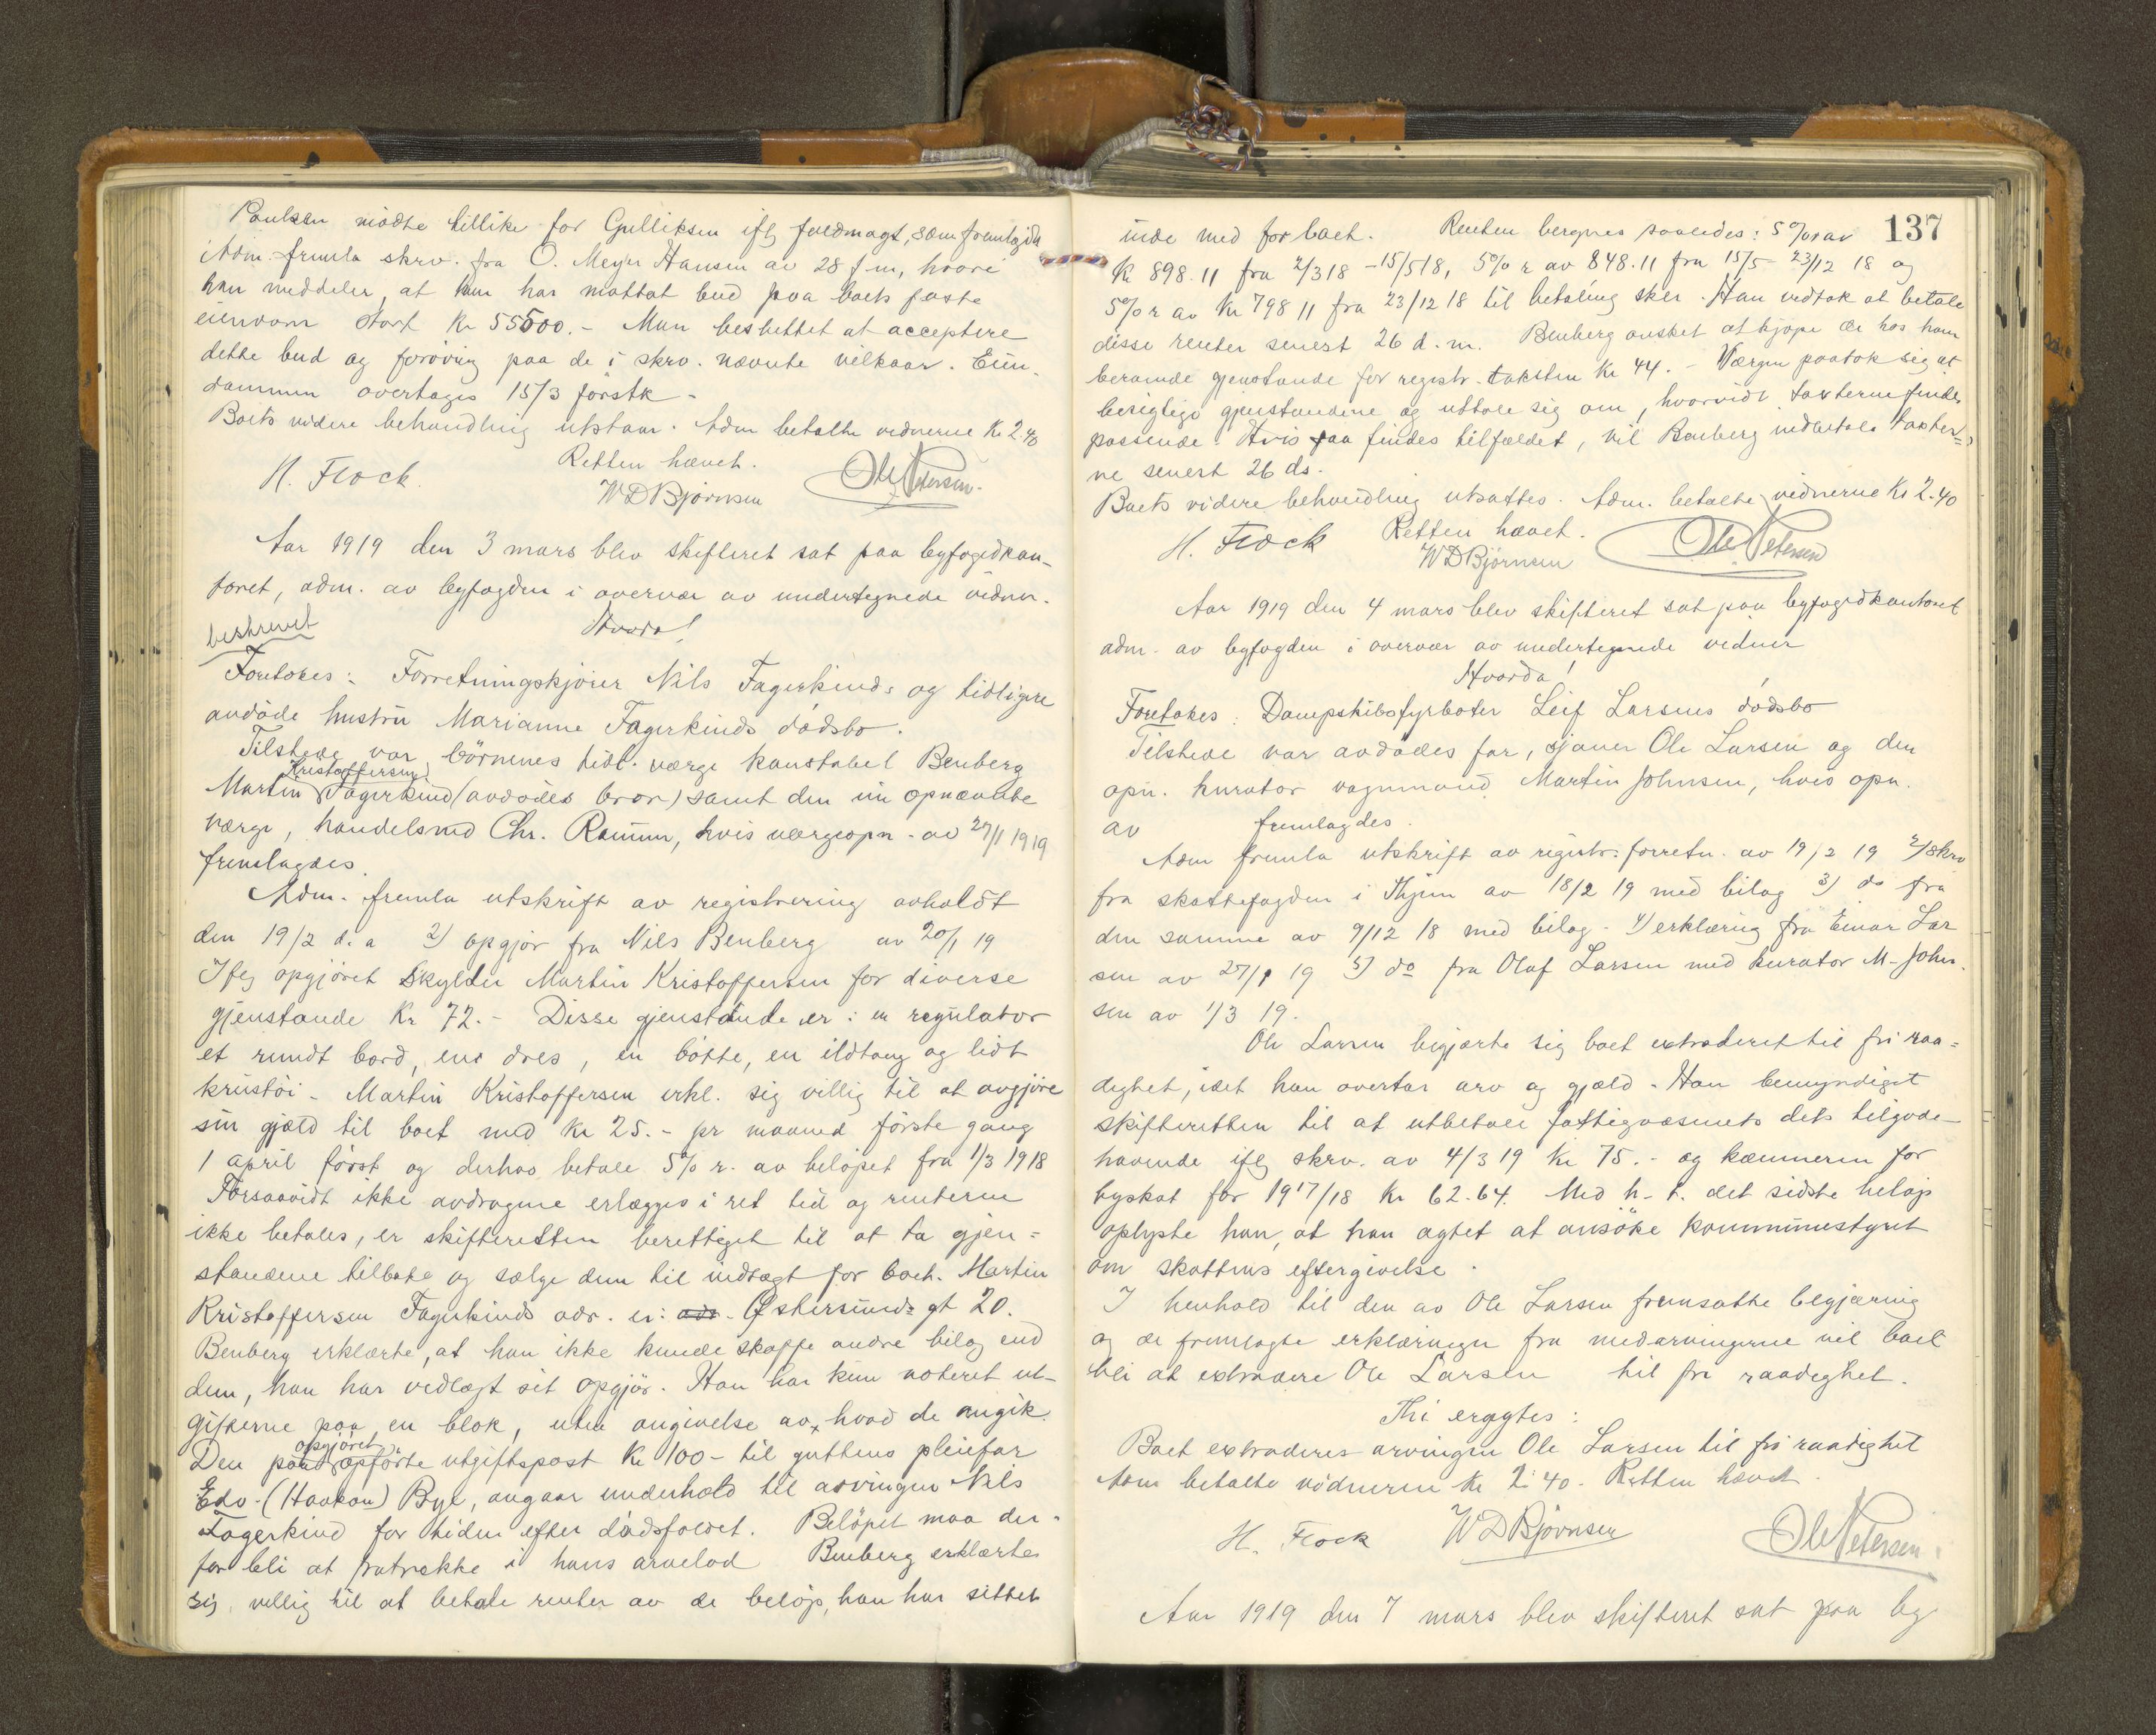 Paulsen mødte tillike for Gulliksen iflg fuldmagt, som fremlagdes
Adm. fremla skrv. fra O. Meyer Hansen av 28 f m, hvori
han meddeler, at han har mottat bud paa boets faste
eiendom stort Kr 55500.- Man besluttet at acceptere
dette bud og forøvrig paa de i skrv. nævnte vilkaar. Eien-
dommen overtages 15/3 førstk.
Boets videre behandling utstaar. Adm betalte vidnerne Kr 2.40
Retten hævet.
H. Flock
WDBjørnsen
Ole Petersen
Aar 1919 den 3 mars blev skifteret sat paa byfogedkon-
toret, adm. av byfogden i overvær av undertegnede vidner.
beskrevet
Hvorda!
Foretokes: Forretningskjører Nils Fagerkinds og tidligere
avdøde hustru Marianne Fagerkinds dødsbo.
Tilstede var børnenes tidl. værge konstabel Benberg
Kristoffersen
Martin Fagerkind (avdødes bror) samt den nu opnævnte
værge, handelsmd Chr. Ramm, hvis værgeopn. av 27/1 1919
fremlagdes.
Adm. fremla utskrift av registrering avholdt
den 19/2 d. a 2) opgjør fra Nils Benberg av 20/1 19
Iflg opgjøret skylder Martin Kristoffersen for diverse
gjenstande Kr 72.- Disse gjenstande er: en regulator
et rundt bord, en dres, en bøtte, en ildtang og lidt
kristøi. Martin Kristoffersen erkl. sig villig til at avgjøre
sin gjæld til boet med Kr 25.- pr maaned første gang
1 april først og derhos betale 5% r. av beløpet fra 1/3 1918
Forsaavidt ikke avdragene erlægges i ret tid og renterne
ikke betales, er skifteretten berettiget til at ta gjen=
standene tilbake og sælge dem til indtægt for boet. Martin
Kristoffersen Fagerkinds adr. er: adr. Østersunds gt 20.
Benberg erklærte, at han ikke kunde skaffe andre bilag end
dem, han har vedlagt sit opgjør. Han har kun noteret ut-
gifterne paa en blok, uten angivelse av, hvad de angik.
opgjøret
Den paa opførte utgiftspost Kr 100- til guttens pleiefar
Edv. (Haakon) Bye, angaar underhold til arvingen Nils
Fagerkind for tiden efter dødsfaldet. Beløpet maa der-
for bli at fratrekke i hans arvelod Benberg erklærte
sig villig til at betale renter av de beløp, han har sittet
137
inde med for boet. Renten beregnes saaledes: 5% r av
Kr 898.11 fra 2/3 18 - 15/5 18, 5% r av 848.11 fra 15/5 - 23/12 18 og
5% r av Kr 798 11 fra 23/12 18 til betaling sker. Han vedtok at betale
disse renter senest 26 d. m. Benberg ønsket at kjøpe de hos ham
beroende gjenstande for registr. taksten Kr 44.- Værgen paatok sig at
besigtige gjenstandene og uttale sig om, hvorvidt taxterne findes
passende. Hvis saa findes tilfældet, vil Benberg indbetale taxter=
ne senest 26 ds.
Boets videre behandling utsattes. Adm. betalte vidnerne Kr 2.40
Retten hævet.
H. Flock
WDBjørnsen
Ole Petersen
Aar 1919 den 4 mars blev skifteret sat paa byfogedkontoret
adm. av byfogden i overvær av undertegnede vidner
Hvorda!
Foretokes: Dampskibsfyrbøter Leif Larsens dødsbo
Tilstede var avdødes far, sjauer Ole Larsen og den
opn. kurator vognmand Martin Johnsen, hvis opn.
av fremlagdes.
Adm fremla utskrift av registr. forretn. av 19/2 19 2/ skrv
fra skattefogden i Thjem av 18/2 19 med bilag 3) do fra
den samme av 9/12 18 med bilag. 4) erklæring fra Einar Lar
sen av 27/1 19 5) do fra Olaf Larsen med kurator M. John.
sen av 1/3 19.
Ole Larsen begjærte sig boet extraderet til fri raa=
dighet, idet han overtar arv og gjæld. Han bemyndiget
skifteretten til at utbetale fattigvæsenets dets tilgode-
havende iflg skrv. av 4/3 19 Kr 75.- og kæmneren for
byskat for 1917/18 Kr 62.64. Med h. t. det sidste beløp
oplyste han, at han agtet at ansøke kommunestyret
om skattens eftergivelse.
I henhold til den av Ole Larsen fremsatte begjæring
og de fremlagte erklæringer fra medarvingerne vil boet
bli at extradere Ole Larsen til fri raadighet.
Thi eragtes:
Boet extraderes arvingen Ole Larsen til fri raadighet
Adm betalte vidnerne Kr 2.40. Retten hævet.
H. Flock
WDBjørnsen
Ole Petersen
Aar 1919 den 7 mars blev skifteret sat paa by